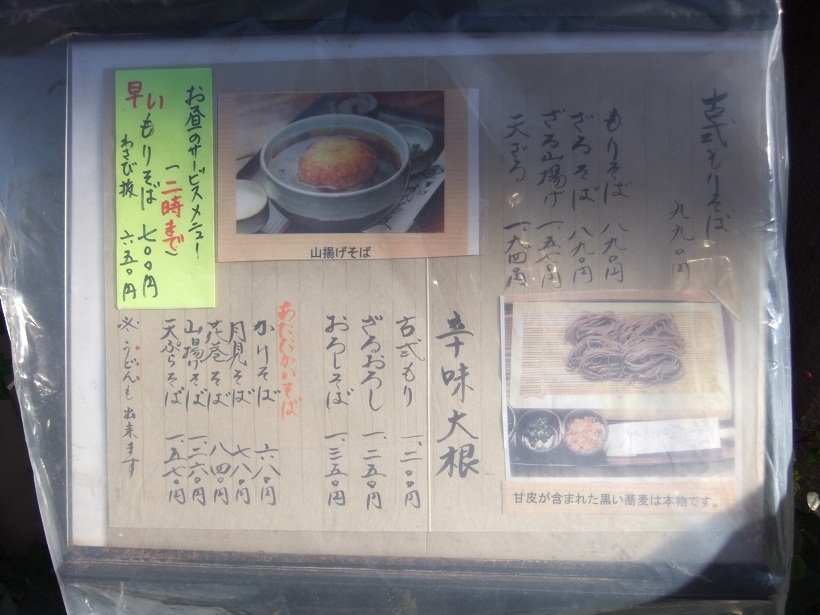 古式もりそば
九九〇円
もりそば 八九〇円
ざるそば 八九〇円
ざる山揚げ 一、五七〇円
天ざる 一、九四〇円
甘皮が含まれた黒い蕎麦は本物です。
山揚げそば
お昼のサービスメニュー
(二時まで)
早い
もりそば 七〇〇円
わさび抜 六五〇円
辛味大根
古式もり 一、二〇〇円
ざるおろし 一、二五〇円
おろしそば 一、三五〇円
あたたかいそば
かけそば 六八〇円
月見そば 七八〇円
花巻そば 八四〇円
山揚げそば 一、三六〇円
天ぷらそば 一、五七〇円
※うどんも出来ます